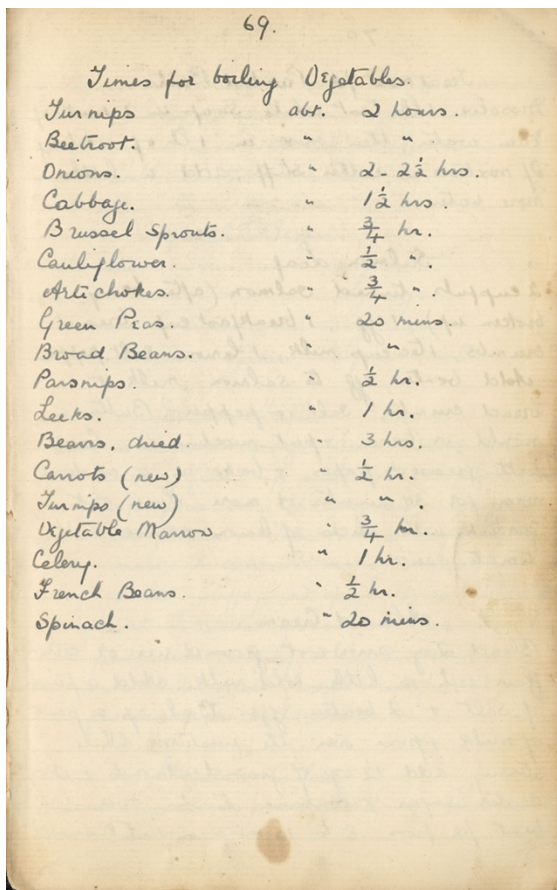 69.
Times for boiling Vegetables.
Turnips abt. 2 hours.
Beetroot. " "
Onions. " 2 - 2½ hrs.
Cabbage. " 1½ hrs.
Brussel Sprouts. " ¾ hr.
Cauliflower. " ½ ".
Artichokes. " ¾ ".
Green Peas. " 20 mins.
Broad Beans. " "
Parsnips. " ½ hr.
Leeks. " 1 hr.
Beans, dried " 3 hrs.
Carrots (new) " ½ hr.
Turnips (new) " ".
Vegetable Marrow " ¾ hr.
Celery. " 1 hr.
French Beans. " ½ hr.
Spinach. " 20 mins.